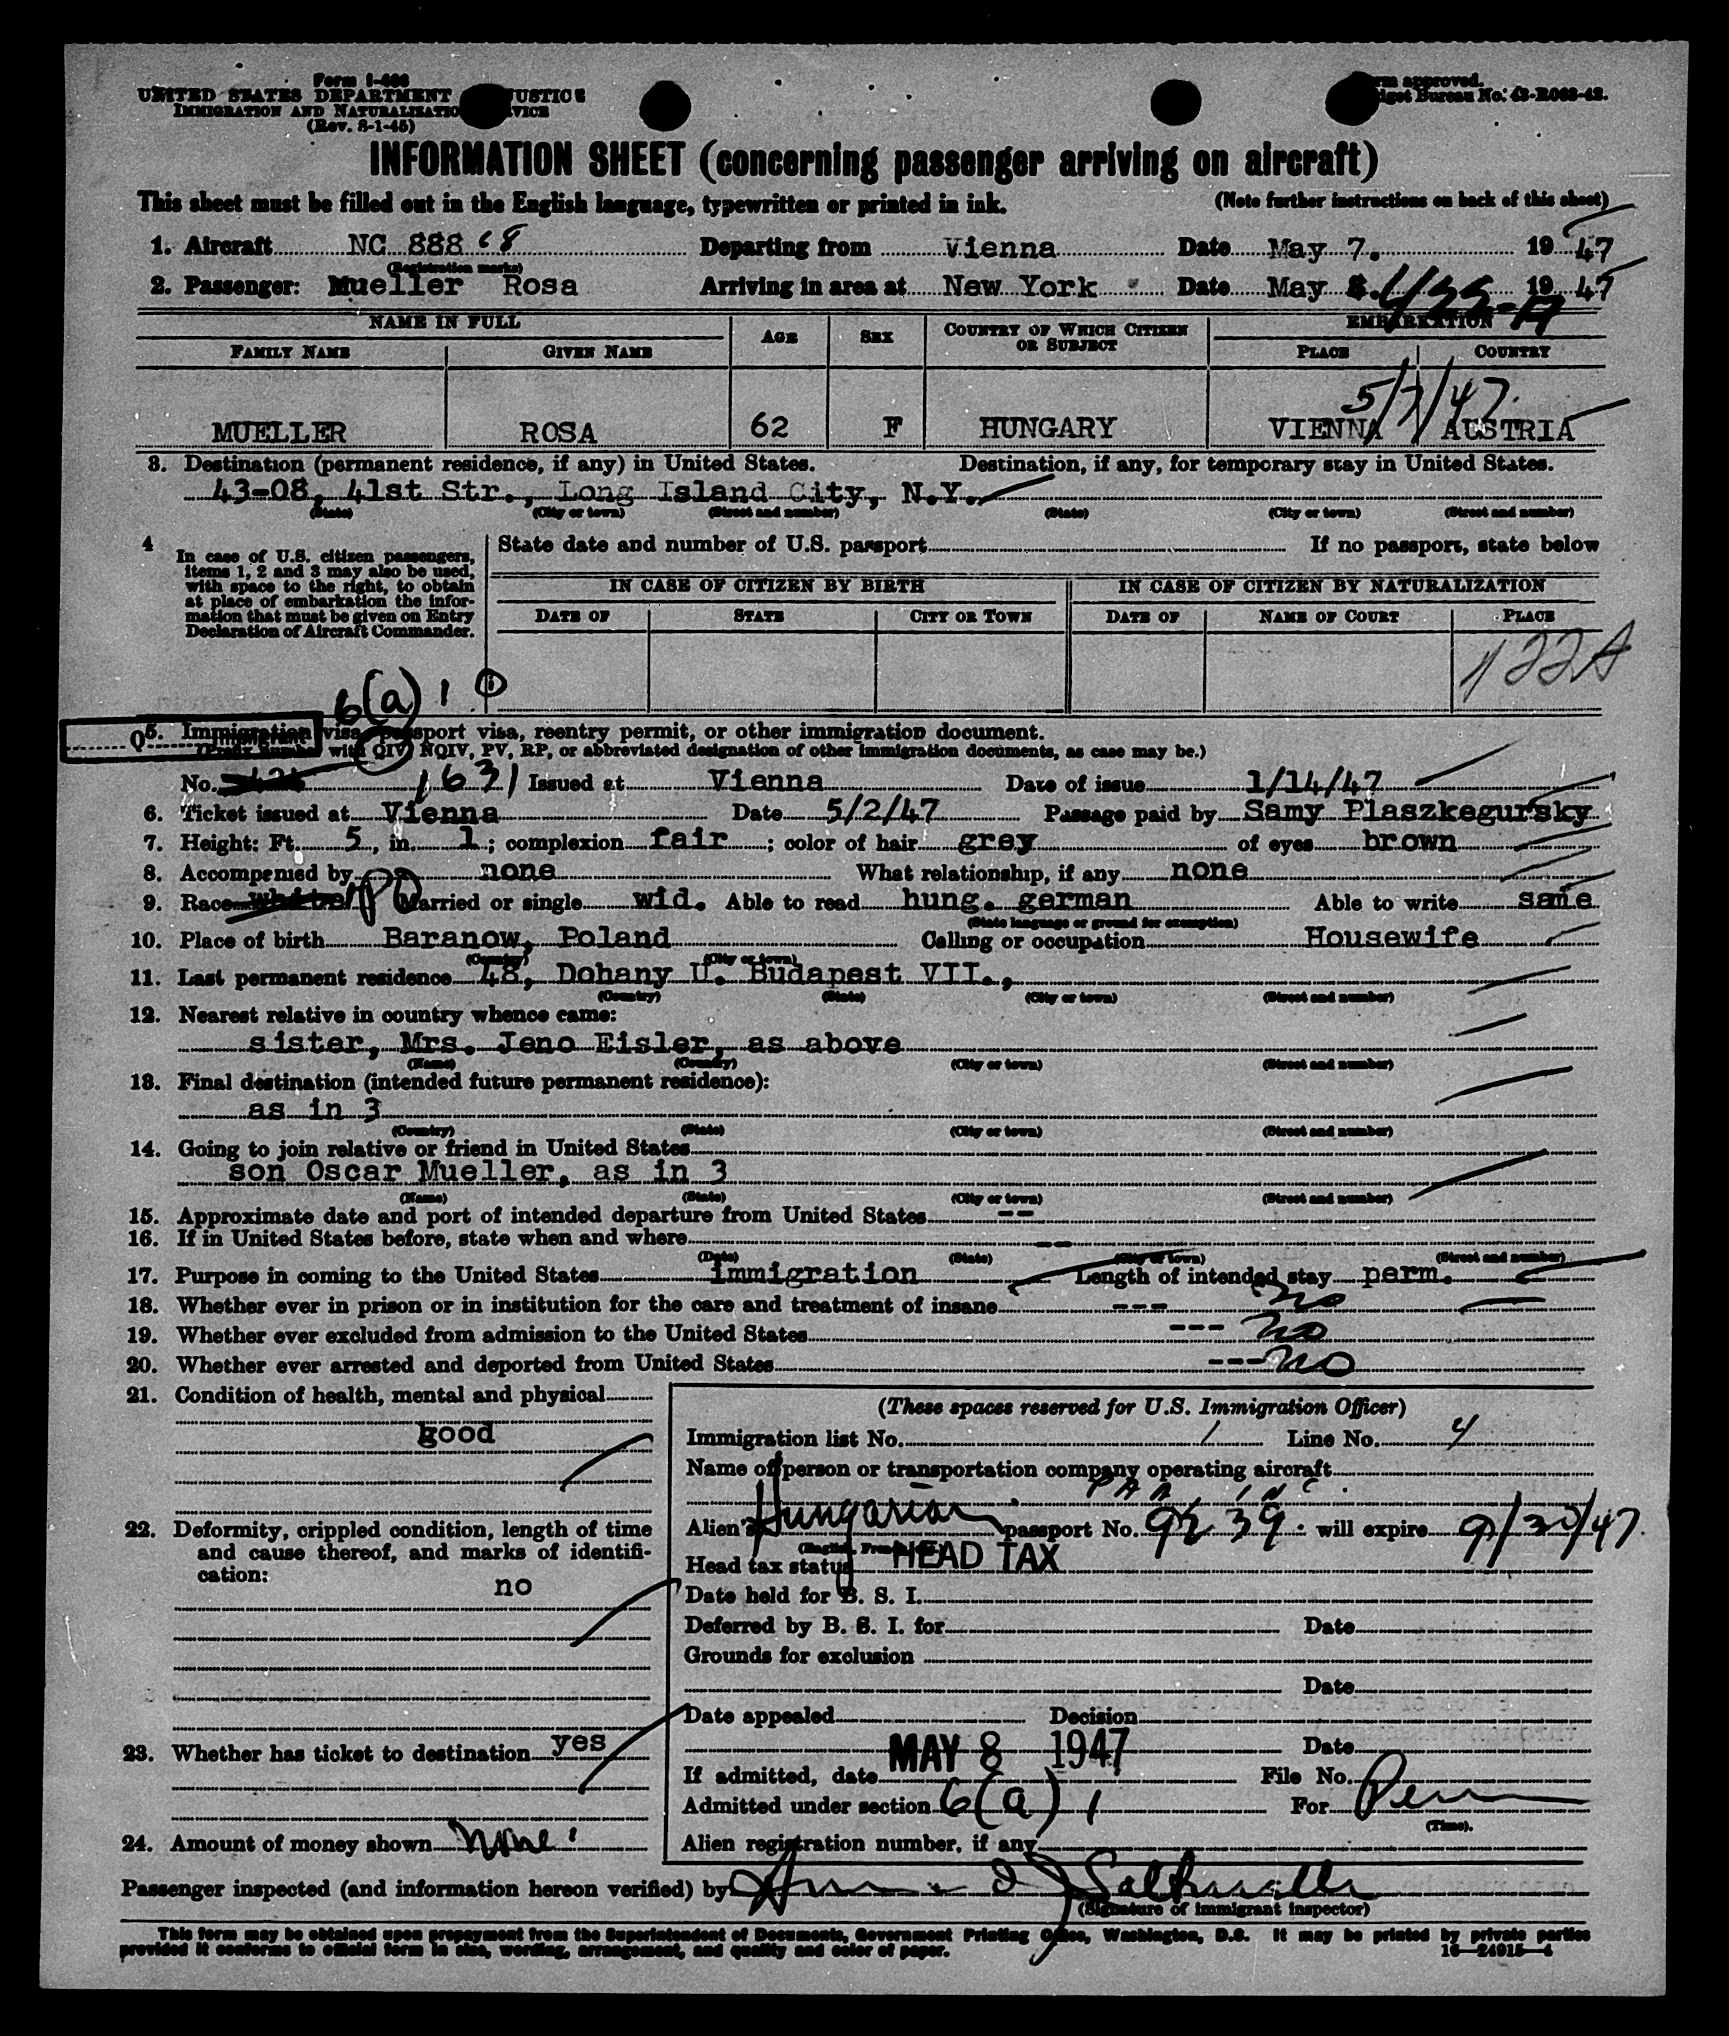 Form I-466
UNITED STATES DEPARTMENT JUSTICE
IMMIGRATION AND NATURALIZATION SERVICE
(Rev. 8-1-45)
Form approved.
Budget Bureau No. 43-R068-42.
INFORMATION SHEET (concerning passenger arriving on aircraft)
This sheet must be filled out in the English language, typewritten or printed in ink. (Note further instructions on back of this sheet)
1. Aircraft NC 88868 Departing from Vienna Date May 7. 1947
(Registration marks)
2. Passenger: Mueller Rosa Arriving in area at New York Date May 8. 1947
NAME IN FULL AGE SEX COUNTRY OF WHICH CITIZEN OR SUBJECT EMBARKATION
FAMILY NAME GIVEN NAME PLACE COUNTRY
5/7/47
MUELLER ROSA 62 F HUNGARY VIENNA AUSTRIA
3. Destination (permanent residence, if any) in United States. Destination, if any, for temporary stay in United States.
43-08, 41st Str., Long Island City, N.Y.
(State) (City or town) (Street and number) (State) (City or town) (Street and number)
4 In case of U.S. citizen passengers, items 1, 2 and 3 may also be used, with space to the right, to obtain at place of embarkation the information that must be given on Entry Declaration of Aircraft Commander.
State date and number of U.S. passport If no passport, state below
IN CASE OF CITIZEN BY BIRTH IN CASE OF CITIZEN BY NATURALIZATION
DATE OF STATE CITY OR TOWN DATE OF NAME OF COURT PLACE
6(a) 1
Q
5. Immigration visa, passport visa, reentry permit, or other immigration document.
(Prefix Number with QIV, NQIV, PV, RP, or abbreviated designation of other immigration documents, as case may be.)
No. 1631 Issued at Vienna Date of issue 1/14/47
6. Ticket issued at Vienna Date 5/2/47 Passage paid by Samy Plaszkegursky
7. Height: Ft. 5, in. 1; complexion fair; color of hair grey of eyes brown
8. Accompanied by none What relationship, if any none
9. Race white Married or single wid. Able to read hung. german Able to write same
(State language or ground for exemption)
10. Place of birth Baranow, Poland Calling or occupation Housewife
(Country) (City or town)
11. Last permanent residence 48, Dohany U. Budapest VII.,
(Country) (State) (City or town) (Street and number)
12. Nearest relative in country whence came:
sister, Mrs. Jeno Eisler, as above
(Name) (Country) (City or town) (Street and number)
13. Final destination (intended future permanent residence):
as in 3
(Country) (State) (City or town) (Street and number)
14. Going to join relative or friend in United States
son Oscar Mueller, as in 3
(Name) (State) (City or town) (Street and number)
15. Approximate date and port of intended departure from United States --
16. If in United States before, state when and where --
(Date) (State) (City or town) (Street and number)
17. Purpose in coming to the United States immigration Length of intended stay perm.
18. Whether ever in prison or in institution for the care and treatment of insane --- no
19. Whether ever excluded from admission to the United States --- no
20. Whether ever arrested and deported from United States --- no
21. Condition of health, mental and physical
good
22. Deformity, crippled condition, length of time and cause thereof, and marks of identification:
no
23. Whether has ticket to destination yes
24. Amount of money shown none
(These spaces reserved for U.S. Immigration Officer)
Immigration list No. 1 Line No. 4
Name of person or transportation company operating aircraft
P A A, INC.
Alien's Hungarian passport No. 9239 will expire 9/30/47
Head tax status HEAD TAX
Date held for B. S. I.
Deferred by B. S. I. for Date
Grounds for exclusion
Date
Date appealed Decision
Date
If admitted, date MAY 8 1947 File No.
Admitted under section 6(a) 1 For Perm
(Time).
Alien registration number, if any
Passenger inspected (and information hereon verified) by
(Signature of immigrant inspector)
This form may be obtained upon prepayment from the Superintendent of Documents, Government Printing Office, Washington, D.C. It may be printed by private parties
provided it conforms to official form in size, wording, arrangement, and quality and color of paper. 16-24915-4